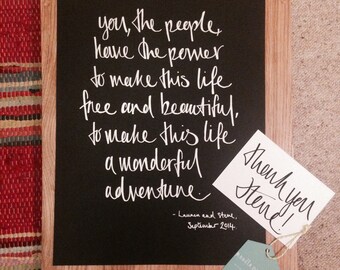 you, the people,
have the power
to make this life
free and beautiful,
to make this life
a wonderful
adventure.
- Lauren and Steve.
September 2014.
Thank you
Steve!